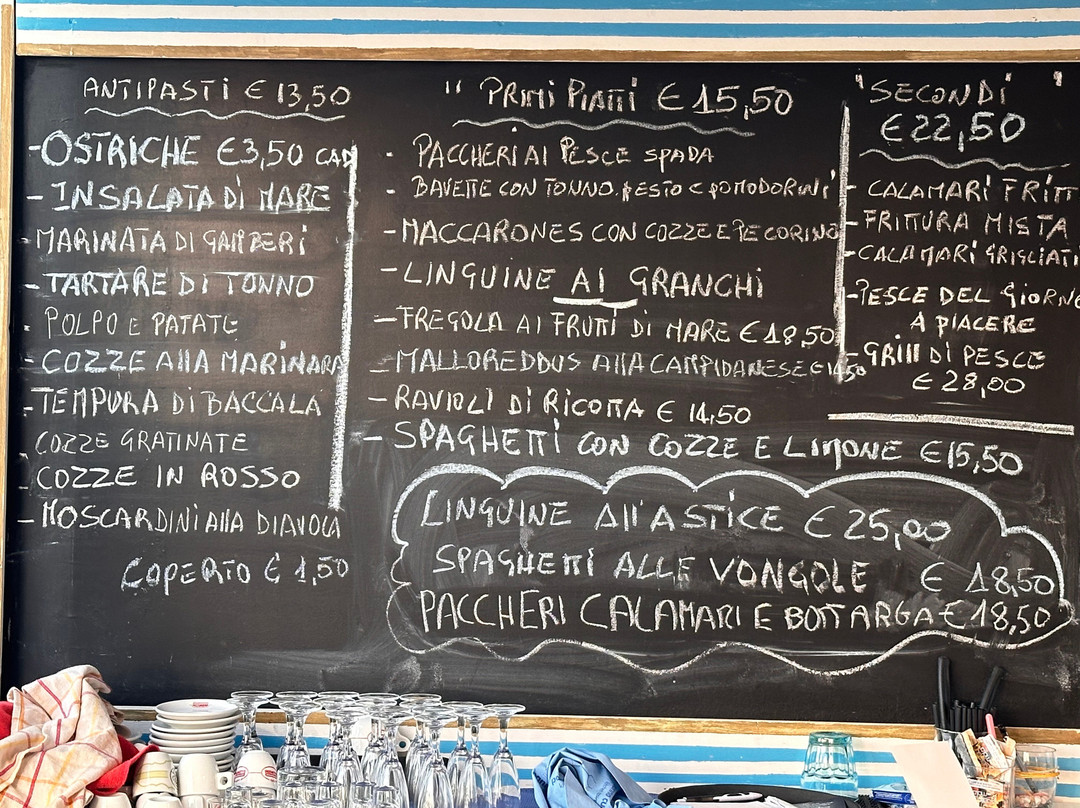 ANTIPASTI € 13,50
-OSTRICHE €3,50 CAD
- INSALATA DI MARE
- MARINATA DI GAMBERI
- TARTARE DI TONNO
- POLPO E PATATE
- COZZE ALLA MARINARA
- TEMPURA DI BACCALÀ
- COZZE GRATINATE
- COZZE IN ROSSO
- MOSCARDINI ALLA DIAVOLA
COPERTO € 1,50
" PRIMI PIATTI € 15,50
- PACCHERI AI PESCE SPADA
- BAVETTE CON TONNO, PESTO E POMODORINI
- MACCARONES CON COZZE E PECORINO
- LINGUINE AI GRANCHI
- FREGOLA AI FRUTTI DI MARE € 18,50
- MALLOREDDUS ALLA CAMPIDANESE € 14,50
- RAVIOLI DI RICOTTA € 14,50
- SPAGHETTI CON COZZE E LIMONE € 15,50
LINGUINE All'ASTICE € 25,00
SPAGHETTI ALLE VONGOLE € 18,50
PACCHERI CALAMARI E BOTTARGA € 18,50
'SECONDI'
€22,50
- CALAMARI FRITTI
- FRITTURA MISTA
- CALAMARI GRIGLIATI
- PESCE DEL GIORNO
A PIACERE
- GRILL DI PESCE
€ 28,00